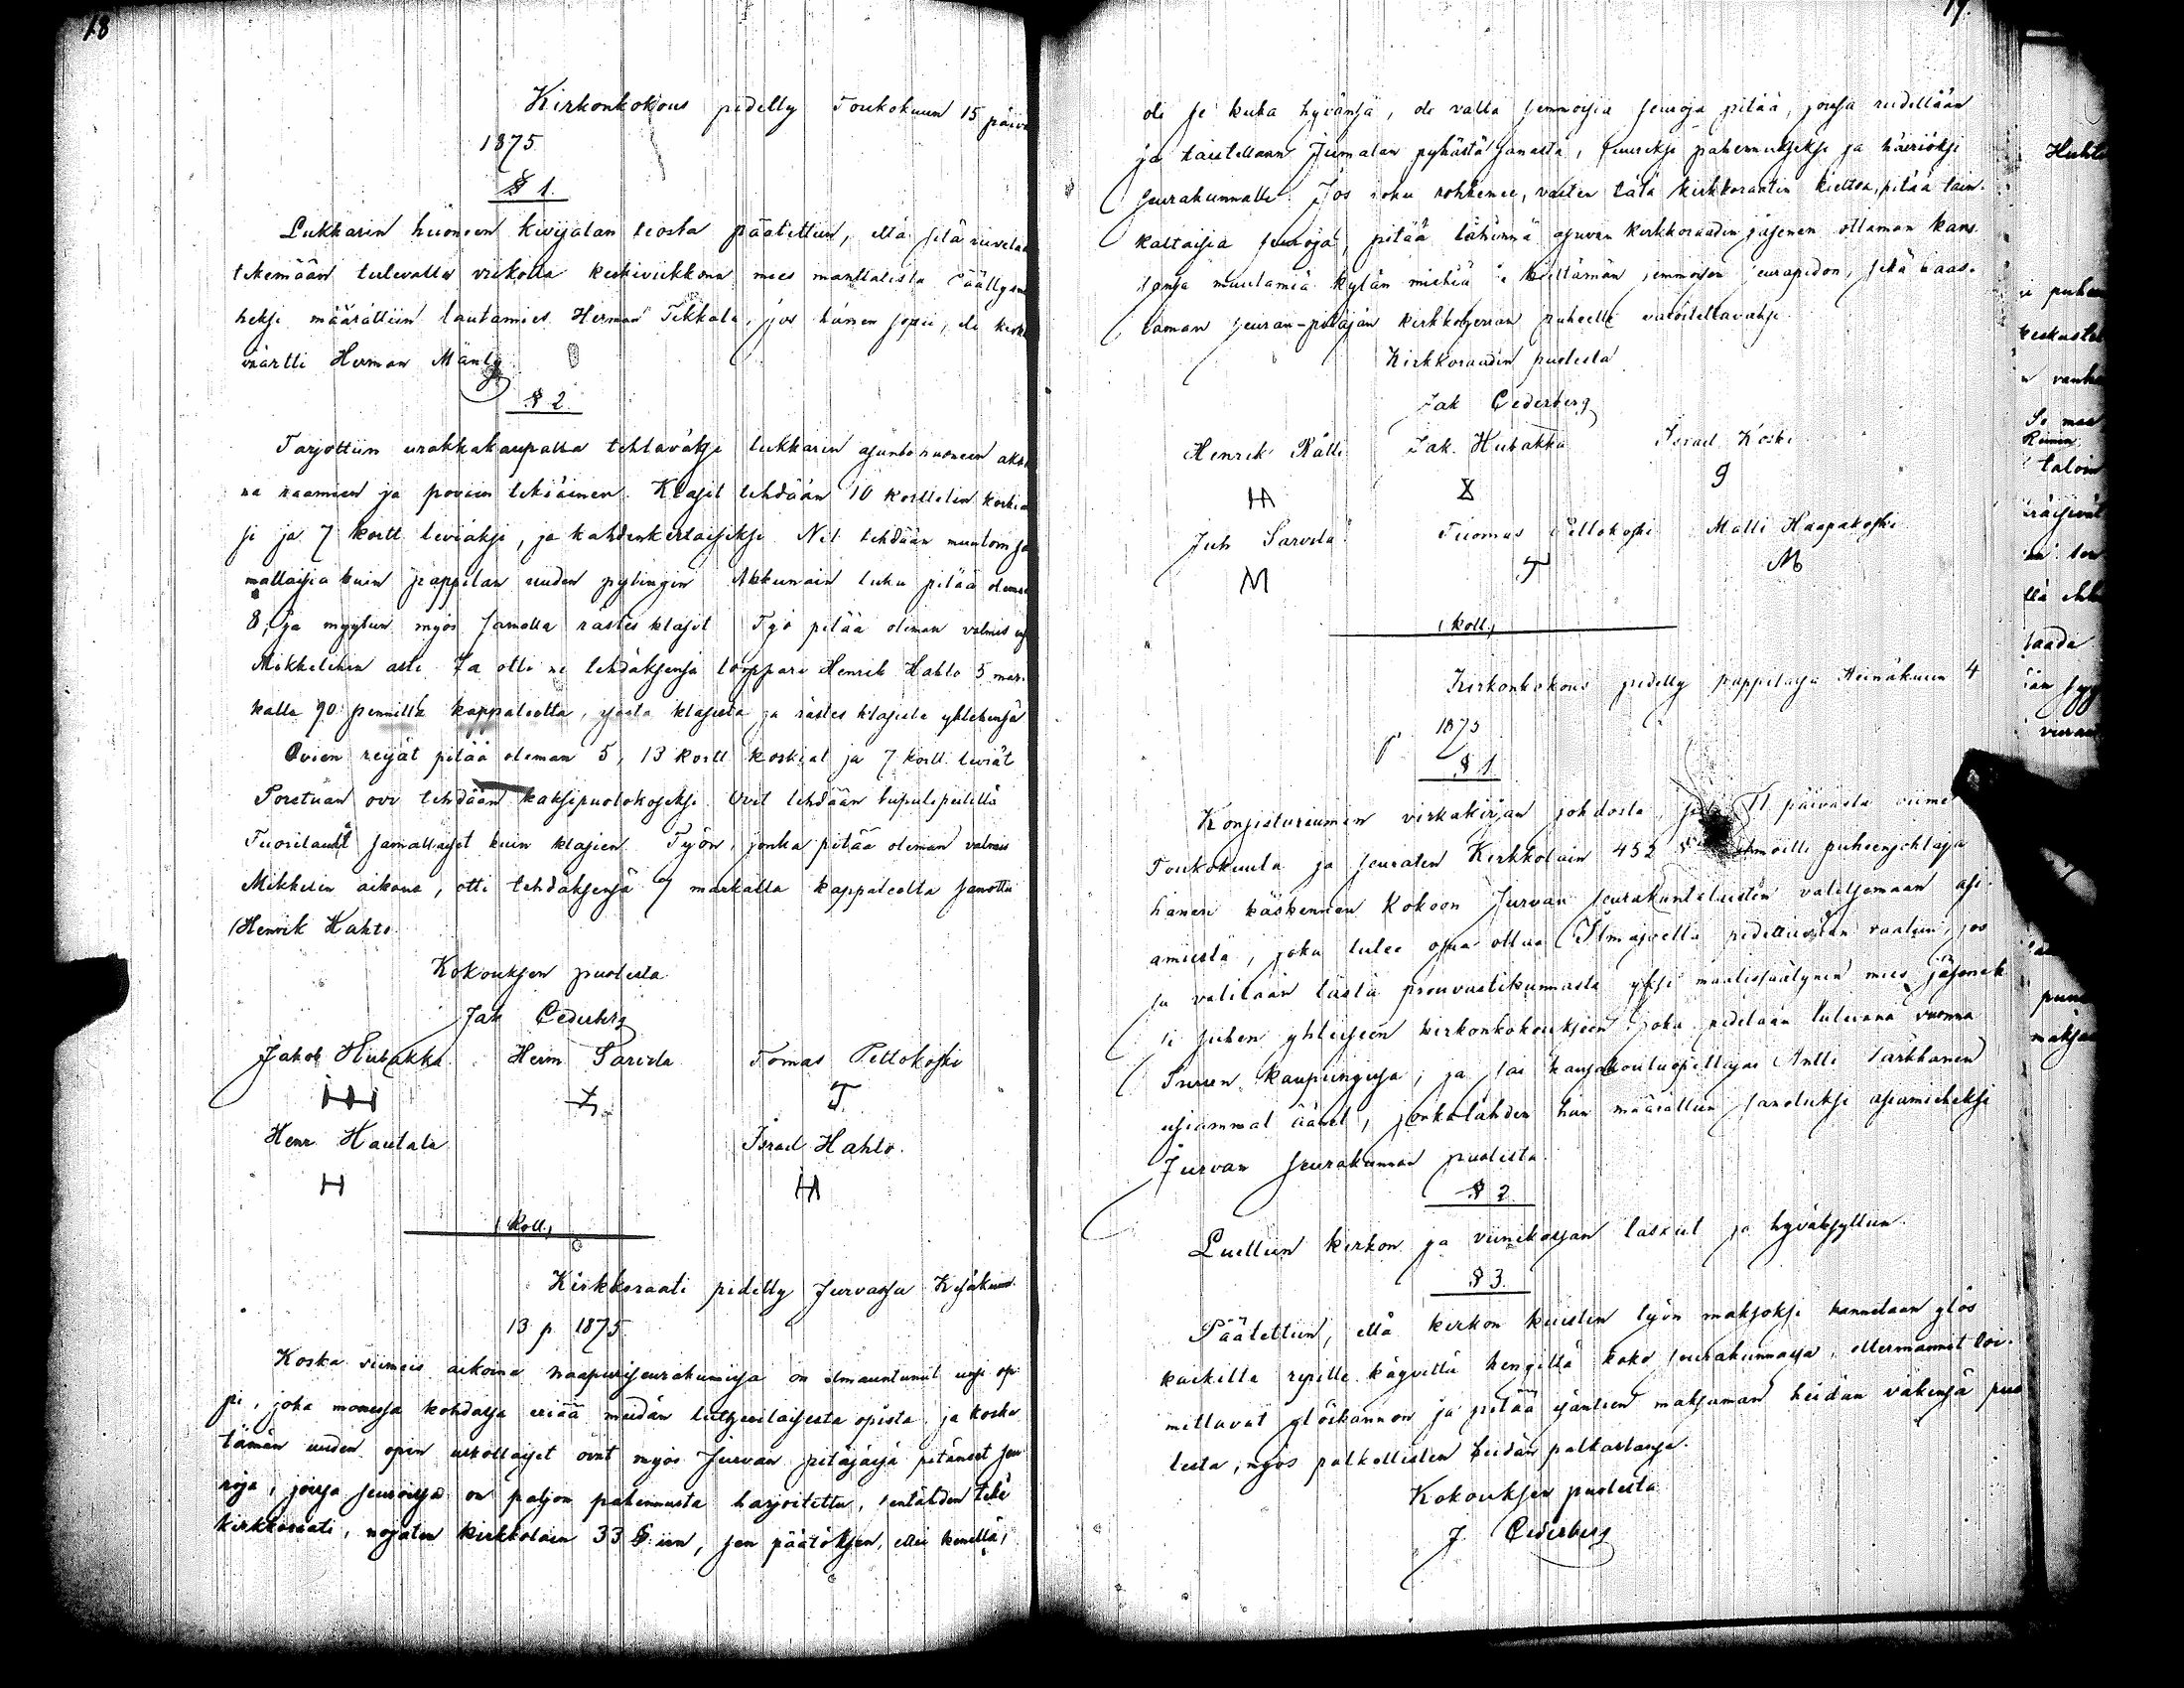 18
Kirkonkokous pidetty Toukokuun 15 päivä
1875
§ 1.
Lukkarin huoneen kivijalan teosta päätettiin, että sitä ruvetaan
tekemään tulevalla viikolla keskiviikkona mies manttalista Päällysmie
heksi määrättiin lautamies Herman Tikkala, jos hänen sopii, eli kirkko
väärtti Herman Mänty
§ 2
Tarjottiin urakkakaupalla tehtäväksi lukkarin asuntohuoneen akku
na raamien ja povien tekiäinen. Klasit tehdään 10 korttelin korkia
si ja 7 kortt leviäksi, ja kahdenkertaiseksi. Net tehdään muutoin sa
mallaisia kuin pappilan uuden pytingin Akkunain luku pitää oleman
8, ja myytiin myös samalla rästes klasit Työ pitää oleman valmis
Mikkelihin asti. Ja otti ne tehdäksensä torppari Henrik Hahto 5 mar-
kalla 90 pennillä kappaleelta, ysta klasista ja rästes klasista yhtehensä
Ovien reijät pitää oleman 5, 13 kortt korkiat ja 7 kortt. leviät
Porstuan ovi tehdään kaksipuolokoseksi Ovet tehdään
Tuorilautt samallaiset kuin klasien Työn, jonka pitää oleman valmis
Mikkelin aikana, otti tehdäksensä 7 markalla kappaleelta sanottu
Henrik Hahto.
Kokouksen puolesta
Jak Cederberg
Jakob Hubakka Herm Sarvela Tomas Peltokoski
T.
Henr Hautala Israel Hahto.
H
(Koll.)
Kirkkoraati pidetty Jurvassa Kesäkuun
13 p 1875
Koska viimeis aikoina naapuriseurakunnissa on ilmauntunut uusi op
pi, joka monessa kohdassa eriää meidän lutherilaisesta opista ja koska
tämän uuden opin uskollaiset ovat myös Jurvan pitäjäsä pitäneet seu
roja, joissa seuroissa on paljon pahennusta harjoitettu, sentähden teki
kirkkoraati, nojaten kirkkolain 33 §:iin, sen päätöksen, ettei kenellä,
17.
oli se kuka hyvänsä, ole valta semmoisia seuroja pitää, joissa riidellään
ja taistellaan Jumalan pyhästä sanasta, suureksi pahennukseksi ja häiriöksi
seurakunnalle. Jos joku rohkenee, vasten tätä kirkkoraatin kieltoa, pitää tain-
kaltaisia seuroja, pitää lähinnä asuvan kirkkoraadin jäsenen ottaman kans-
sansa muutamia kylän miehiä kieltämän semmoisen seurapidon, sekä haas-
taman seuran-pitäjän kirkkoherran puheelle varoitettavaksi
Kirkkoraadin puolesta
Jak Cederberg
Henrik Rätti Jak. Hubakka Israel Koski
Juh Sarvela Tuomas Peltokoski Matti Haapakoski
M T M
(Koll.)
Kirkonkokous pidetty pappilassa Heinäkuun 4
1875
§ 1
Konsistoriumin virkakirjan johdosta, 11 päivästä viime
Toukokuuta ja seuraten Kirkkolain 452 § puheenjohtaja
hänen käskennen kokoon Jurvan seurakuntalaisten valitsemaan asi-
amiestä, joka tulee osaa ottaa Ilmajoella pidettävään vaaliin, jos
sa valitaan tästä prouvastikunnasta yksi maalissäätynen mies jäsenek
si siihen yhteiseen kirkonkokoukseen, joka pidetään tulevana vuonna
Turun kaupungissa, ja sai kansakouluopettaja Antti Tarkkanen
usiammat äänet, jonkatähden hän määrättiin sanotuksi asiamieheksi
Jurvan seurakunnan puolesta.
§ 2.
Luettiin kirkon ja viinikassan laskut ja hyväksyttiin.
§ 3.
Päätettiin, että kirkon kuisten työn maksoksi kannetaan ylös
kaikilta ripille käyviltä hengiltä koko seurakunnassa, oltermannit toi-
mittavat ylöskannon ja pitää isäntien maksaman heidän väkensä puo
lesta, myös palkollisten heidän palkastansa.
Kokouksen puolesta
J. Cederberg